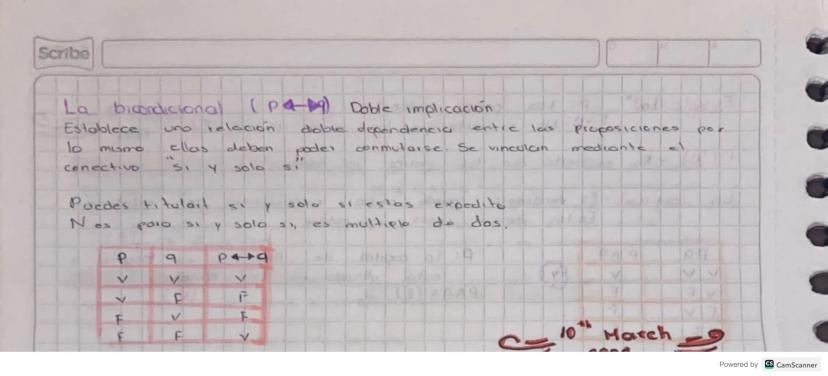 Scribe
La bicondicional (P↔q) Doble implicación
Establece una relación doble dependencia entre las proposiciones por
lo mismo ellas deben poder conmutarse. Se vinculan mediante el
conectivo "si y solo si"
Puedes titulart si y solo si estas expedito
N es para si y solo si, es multiplo de dos.
P q P↔q
V V V
V F F
F V F
F F V
10th March
Powered by CS CamScanner